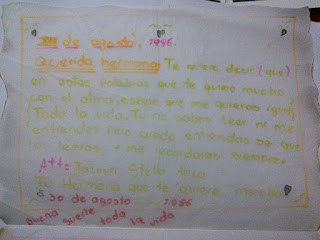 de agosto. 1986.
Querida hermana: Te quiero decir (que)
en estas palabras que te quiero mucho
con el alma, espero que me quieras igual
Toda la vida. Tu no sabes leer ni me
entiendes Pero cuando entiendas se que
lo leeras y me recordaras siempre.
Att: Jazmin Stella
Tu Hermana que te quiere mucho
30 de agosto 1986
Buena suerte toda la vida